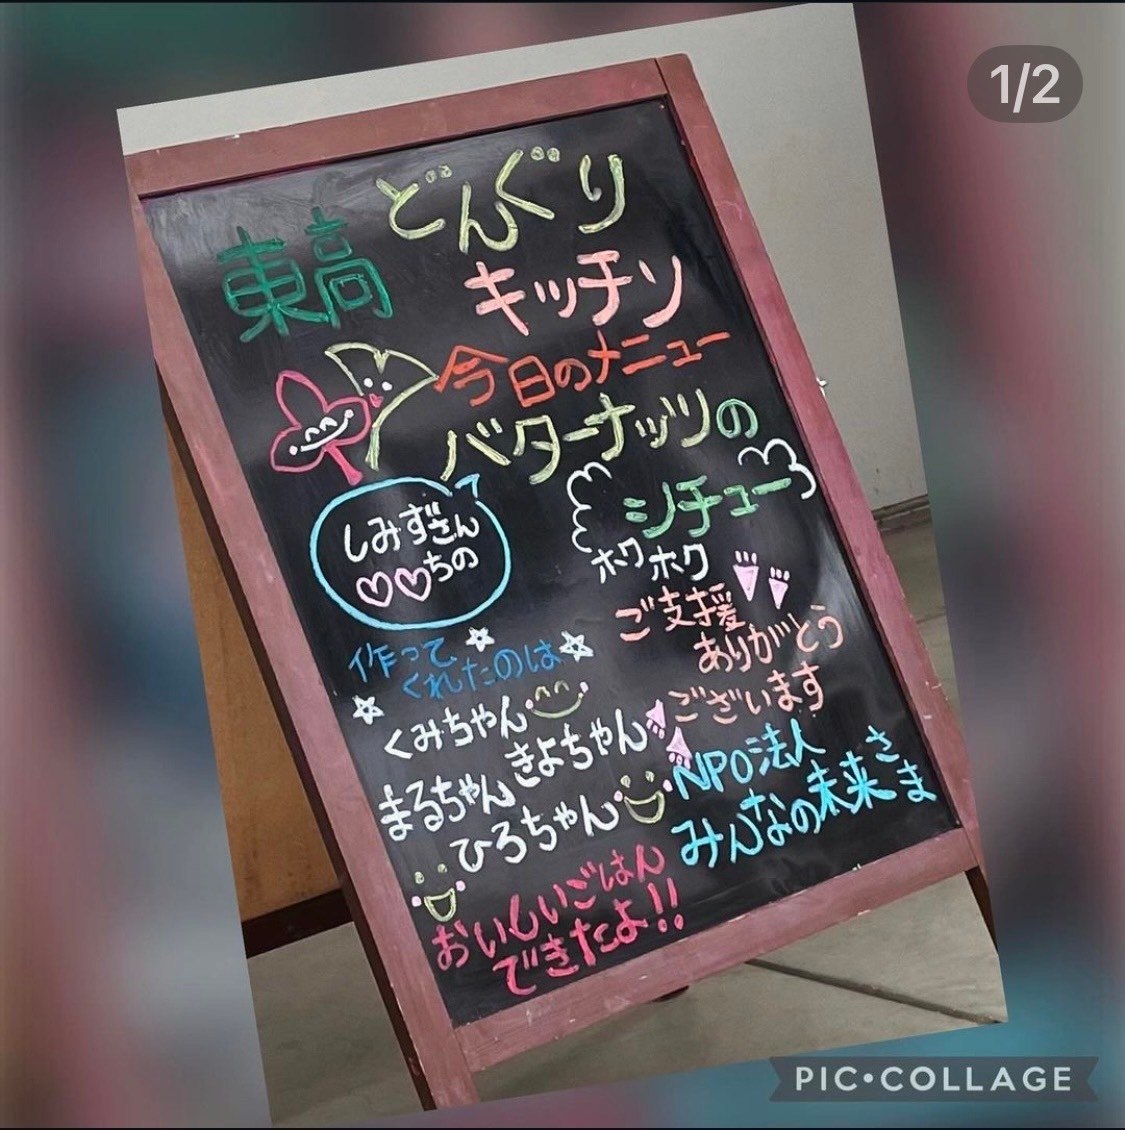 1/2
どんぐり
東高
キッチン
今日のメニュー
バターナッツの
シチュー
ホクホク
しみずさん
♡♡ちの
ご支援
ありがとう
ございます
NPO法人
みんなの未来さま
作って
くれたのは
くみちゃん
きよちゃん
まるちゃん
ひろちゃん
おいしいごはん
できたよ!!
PIC•COLLAGE